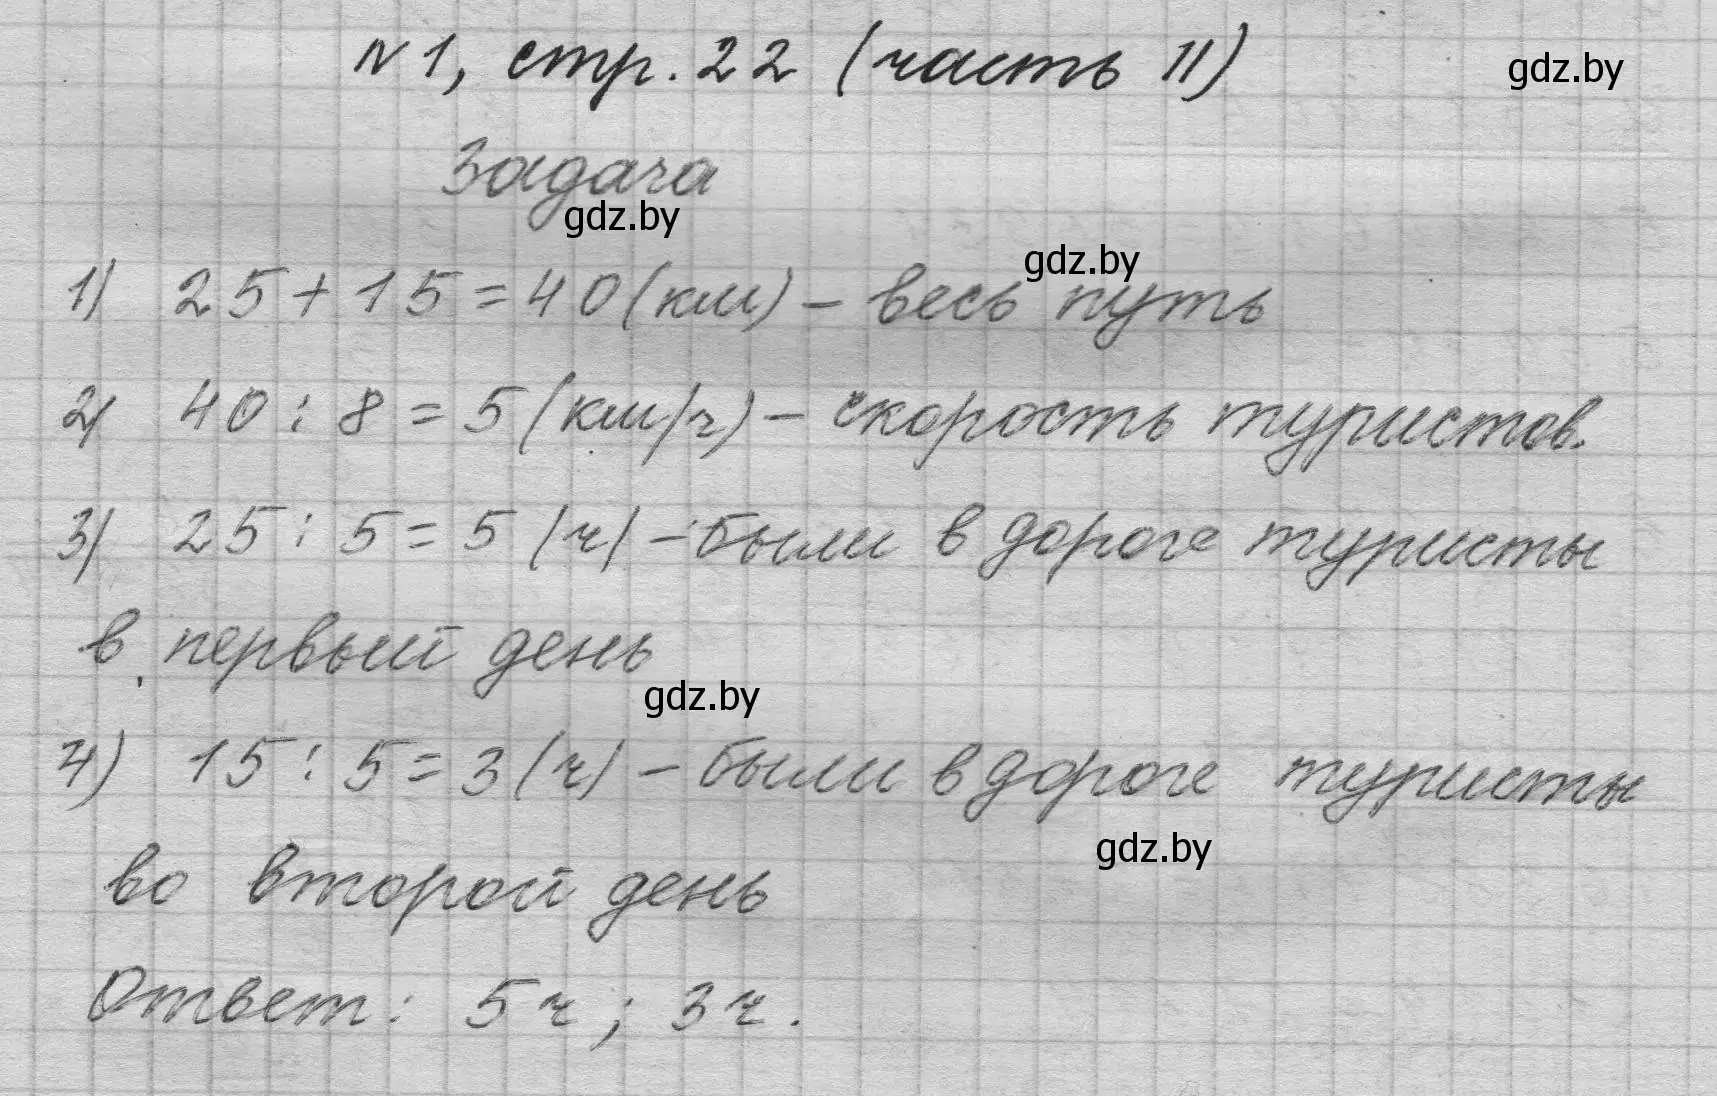 N1, стр. 22 (часть II)
gdz.by
Задача
gdz.by
gdz.by
1) 25+15=40 (км) – весь путь
2) 40 : 8 = 5 (км/ч) – скорость туристов.
3) 25 : 5 = 5 (ч) – были в дороге туристы
в первый день
gdz.by
4) 15 : 5 = 3 (ч) – были в дороге туристы
gdz.by
во второй день
Ответ: 5 ч ; 3 ч.